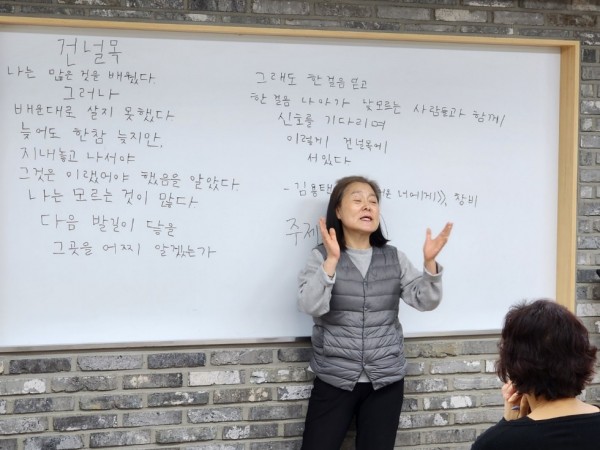 건널목
나는 많은 것을 배웠다
그러나
배운대로 살지 못했다
늦어도 한참 늦지만,
지내놓고 나서야
그것은 이랬어야 했음을 알았다
나는 모르는 것이 많다
다음 발길이 닿을
그곳을 어찌 알겠는가
그래도 한 걸음 딛고
한 걸음 나아가 낯모르는 사람들과 함께
신호를 기다리며
이렇게 건널목에
서있다
- 김용택 네에게》, 창비
주제